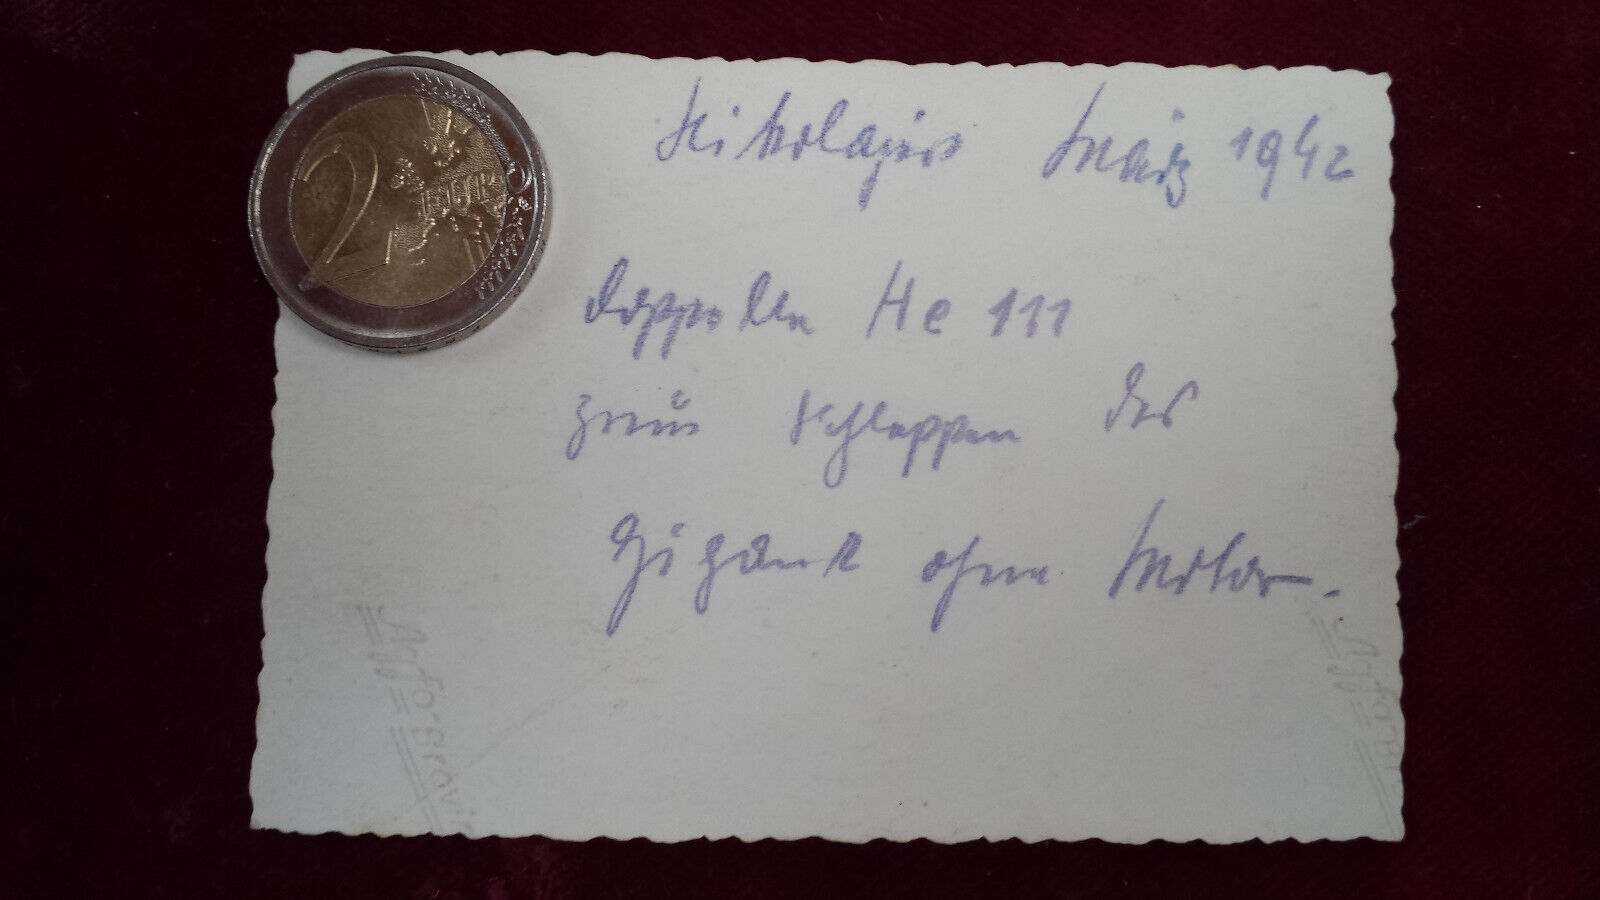 Nikolajew März 1942
Doppelte He 111
zum Schleppen der
Gigant ohne Motor.
Agfa-Brovi
Agfa-B
2
EURO